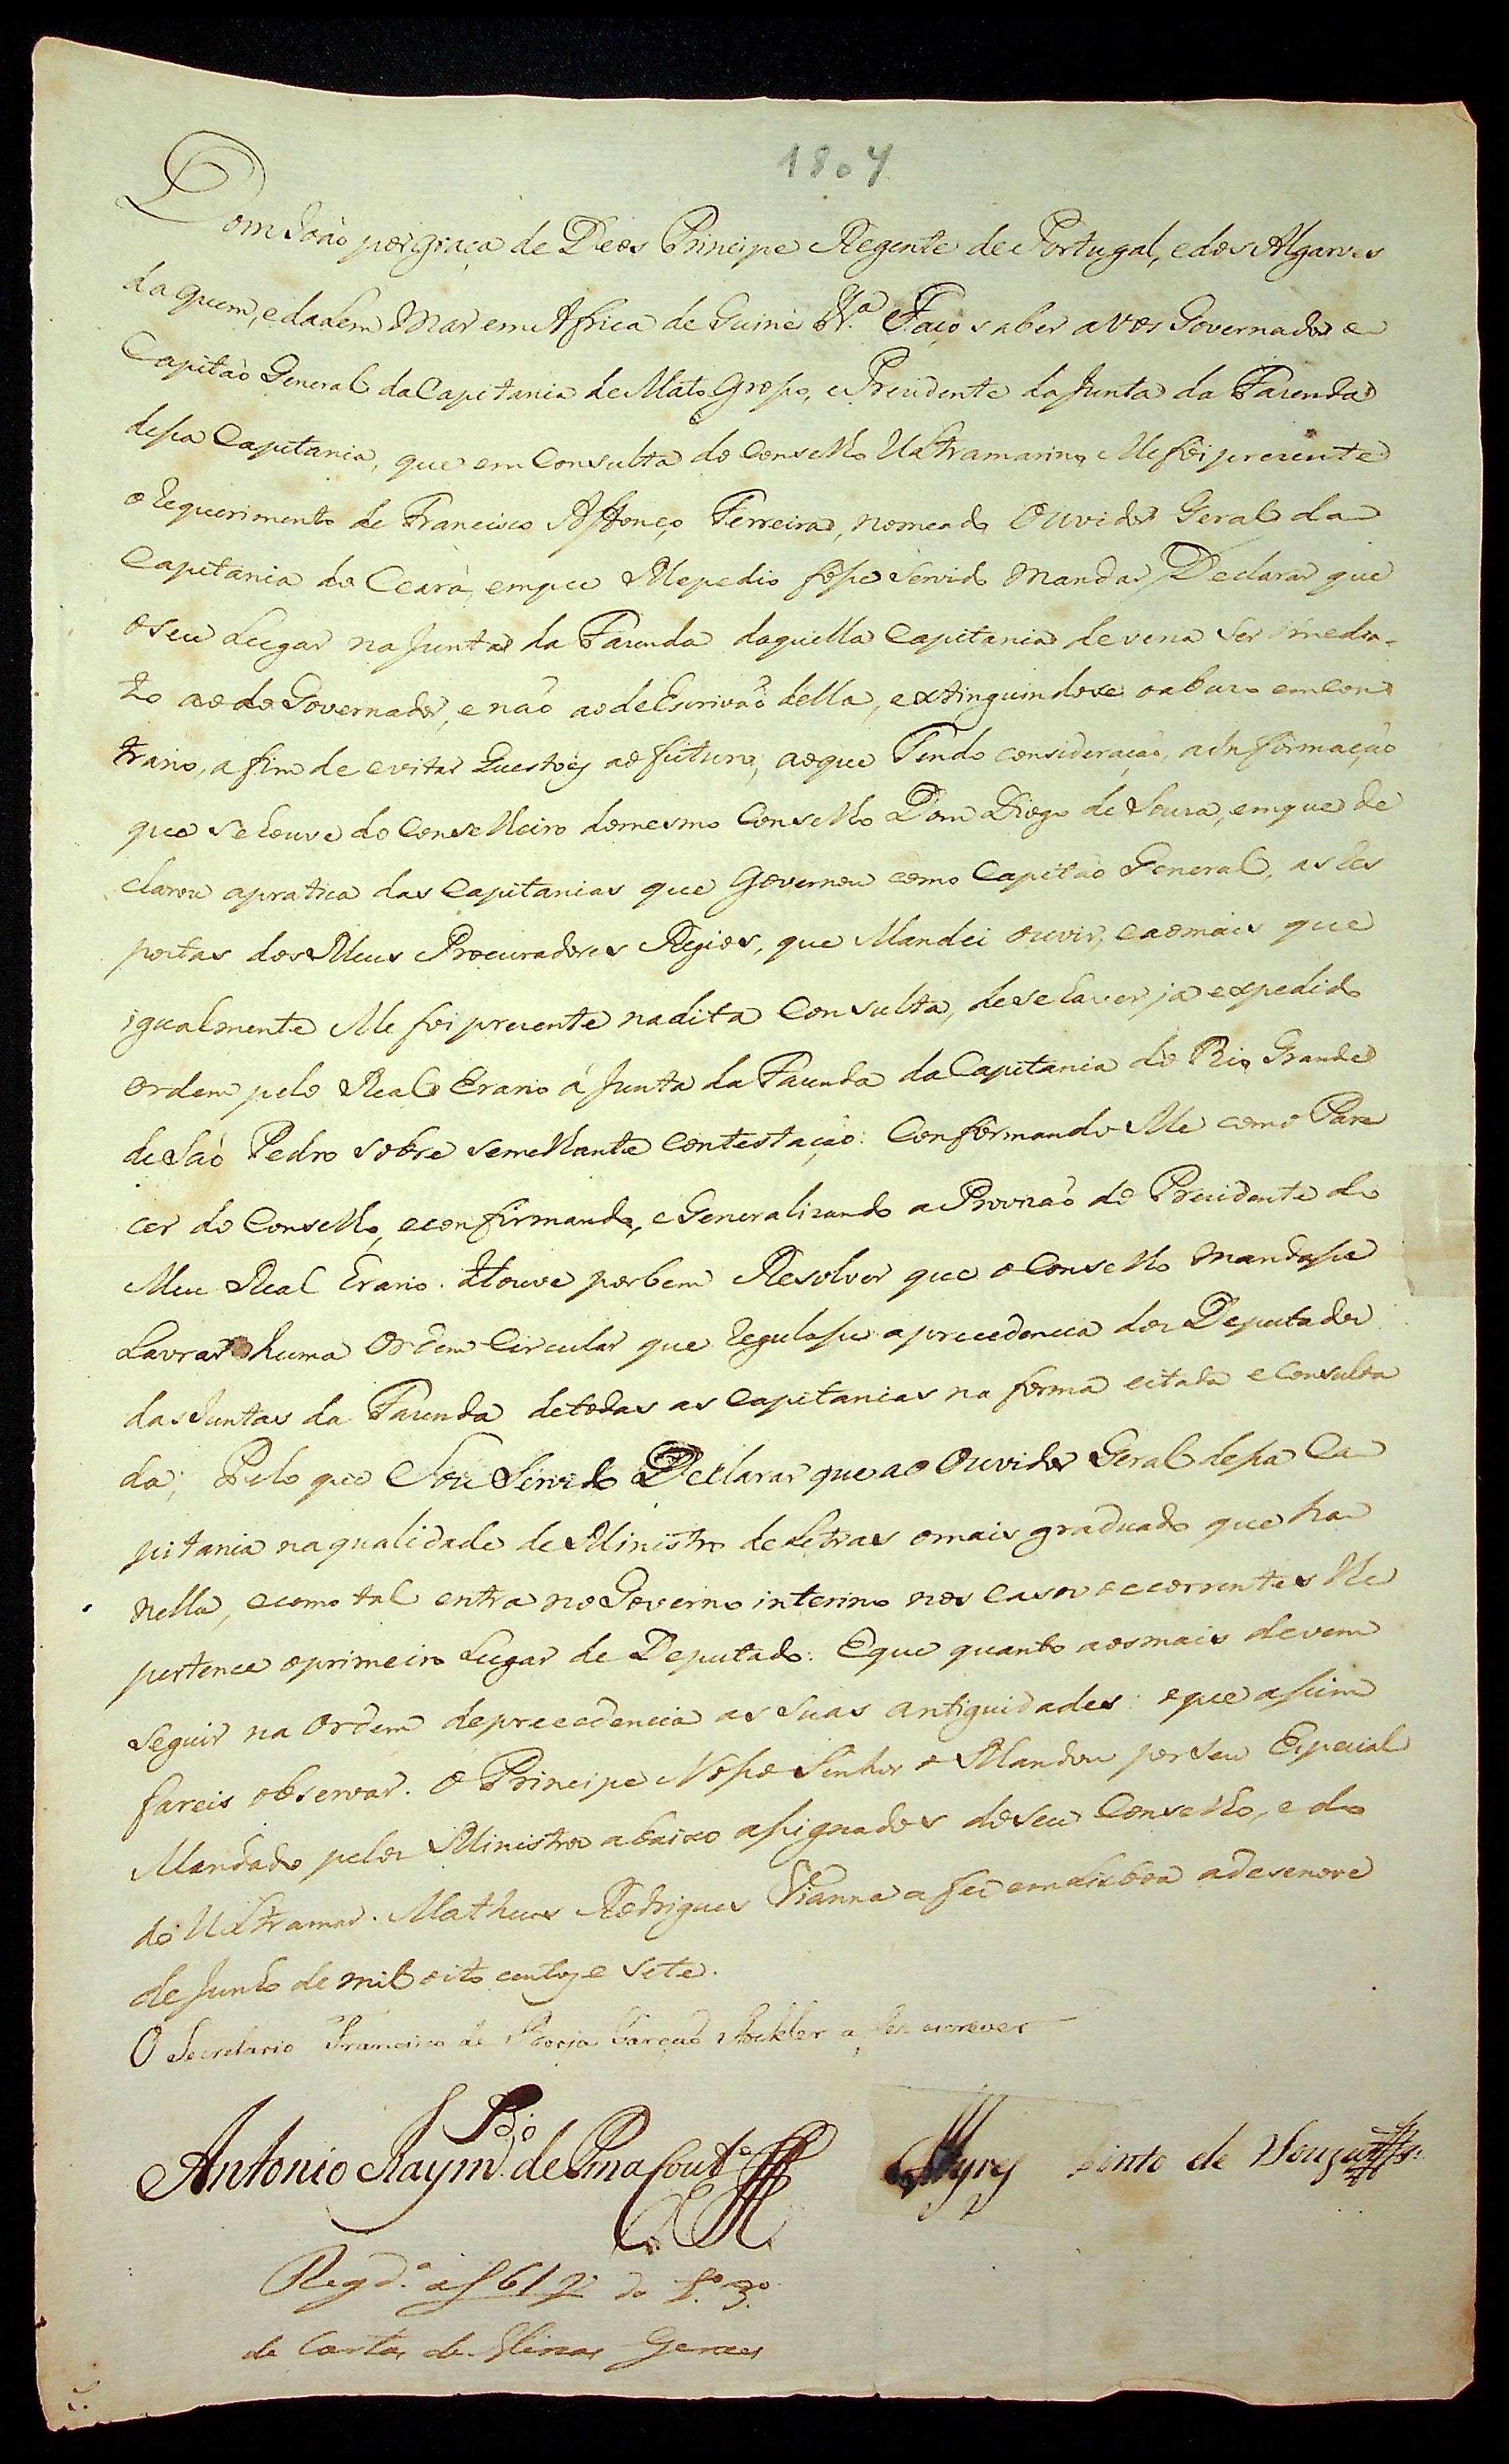 1807
Dom João por graça de Deos Principe Regente de Portugal, e dos Algarves
daquem, e dalem Mar em Africa de Guiné &.ª Faço saber a vos Governador e
Capitão General da Capitania de Mato Groſso, e Prezidente da Junta da Fazenda
deſsa Capitania, que em Consulta do Conselho Ultramarino Me foi prezente
o requerimento de Francisco Affonço Ferreira, nomeado Ouvidor Geral da
Capitania do Ceará, em que Me pedio foſse Servido Mandar Declarar que
o seu Lugar na Junta da Fazenda daquella Capitania deveria ser imedia-
to ao do Governador, e não ao do Escrivão della, extinguindose o abuzo em con
trario, a fim de evitar Questoẽs ao futuro; ao que Tendo consideração, a informação
que se houve do Conselheiro do mesmo Conselho Dom Diogo de Souza, em que de
clarou a pratica das Capitanias que Governou como Capitão General, as res
postas dos Meus Procuradores Regios, que Mandei ouvir, e ao mais que
igualmente Me foi prezente na dita Consulta, de se haver já expedido
ordem pelo Real Erario á Junta da Fazenda da Capitania do Rio Grande
de São Pedro sobre semelhante contestação: Conformando Me com o Pare
cer do Conselho, e confirmando, e Generalizando a Provizão do Prezidente do
Meu Real Erario. Houve por bem Resolver que o Conselho mandaſse
Lavrar huma Ordem Circular que regulaſse a precedencia dos Deputados
das Juntas da Fazenda de todas as Capitanias na forma citada e Consulta
da; Pelo que Sou Servido Declarar que ao Ouvidor Geral deſsa Ca
pitania na qualidade de Ministro de Letras o mais graduado que ha
nella, e como tal entra no Governo interino nos cazos occorrentes lhe
pertence o primeiro Lugar de Deputado: E que quanto aos mais devem
seguir na Ordem de precedencia as suas antiguidades: o que aſsim
fareis observar. O Principe Noſso Senhor o Mandou por seu Especial
Mandado pelos Ministros abaixo aſsignados do seu Conselho, e do
do Ultramar. Matheus Rodrigues Vianna a fez em Lisboa a dezenove
de Junho de mil oito centos e sete.
O Secretario Francisco de Borja Garção Stockler a fez escrever
Antonio Raym.do de Pina Cout.o
Ayres Pinto de Souza
Reg.da a f 61 v do L.o 3.o
de Cartas de Minas Geraes